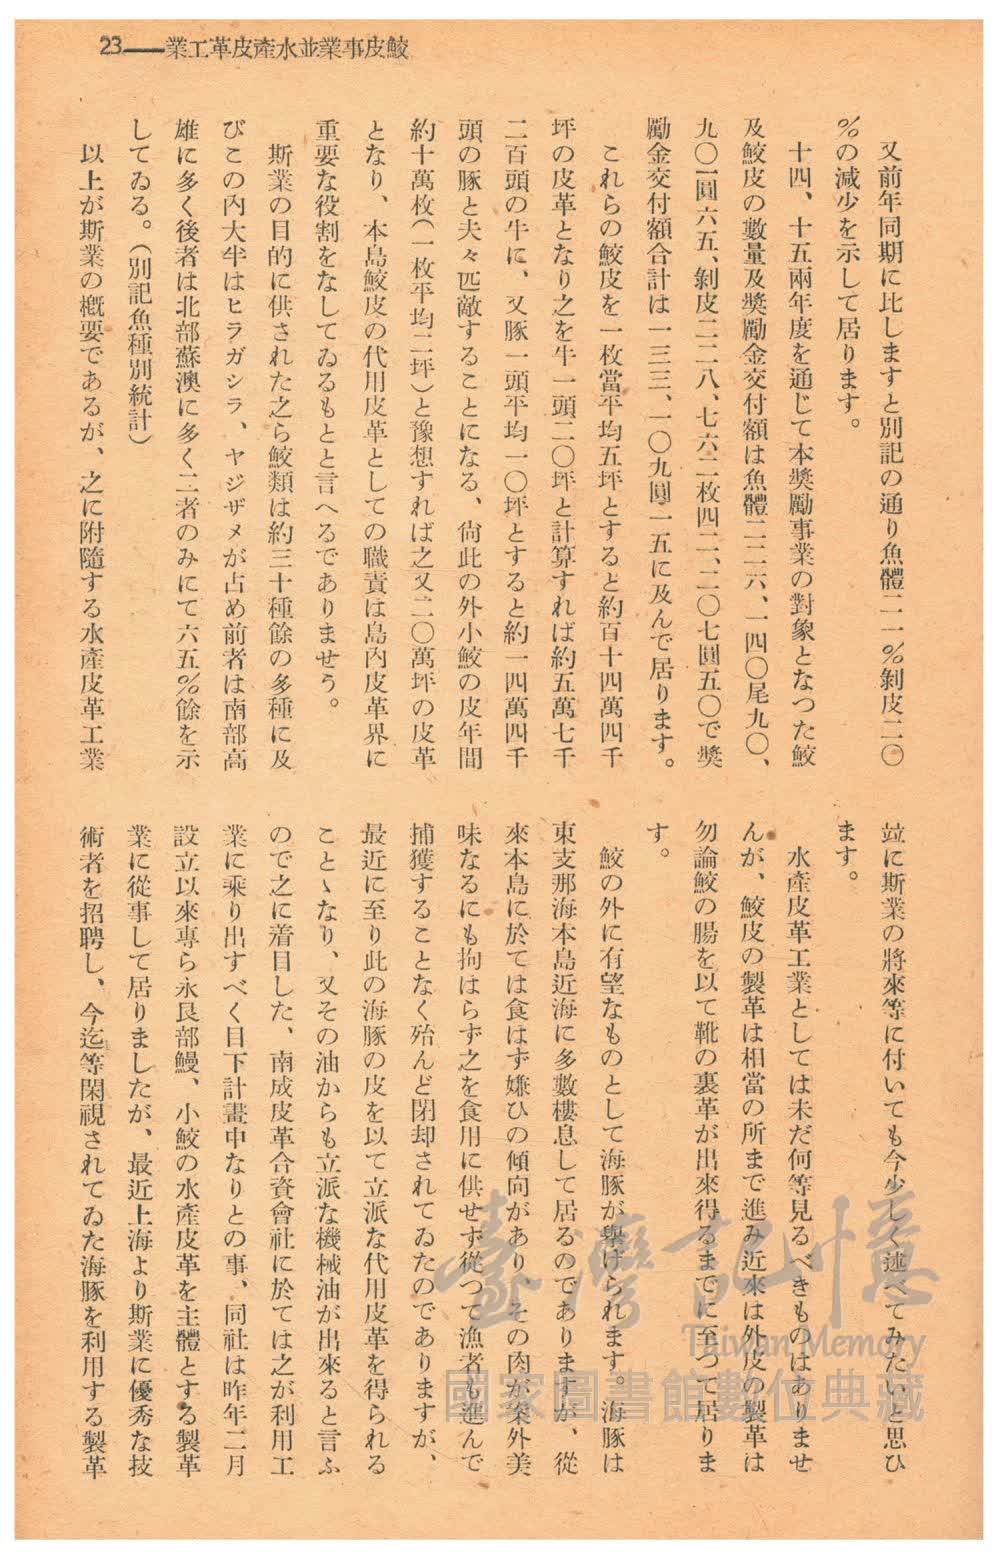 23——業工革皮產水並業事皮鮫
又前年同期に比しますと別記の通り魚體二一%剝皮二〇
%の減少を示して居ります。
十四、十五兩年度を通じて本獎勵事業の對象となつた鮫
及鮫皮の數量及獎勵金交付額は魚體二二六、一四〇尾九〇、
九〇一圓六五、剝皮二二八、七六二枚四二、二〇七圓五〇で獎
勵金交付額合計は一三三、一〇九圓一五に及んで居ります。
これらの鮫皮を一枚當平均五坪とすると約百十四萬四千
坪の皮革となり之を牛一頭二〇坪と計算すれば約五萬七千
二百頭の牛に、又豚一頭平均一〇坪とすると約一四萬四千
頭の豚と夫々匹敵することになる、尙此の外小鮫の皮年間
約十萬枚(一枚平均二坪)と豫想すれば之又二〇萬坪の皮革
となり、本島鮫皮の代用皮革としての職責は島內皮革界に
重要な役割をなしてゐるもとと言へるでありませう。
斯業の目的に供された之ら鮫類は約三十種餘の多種に及
びこの內大半はヒラガシラ、ヤジザメが占め前者は南部高
雄に多く後者は北部蘇澳に多く二者のみにて六五%餘を示
してゐる。(別記魚種別統計)
以上が斯業の概要であるが、之に附隨する水產皮革工業
竝に斯業の將來等に付いても今少しく述べてみたいと思ひ
ます。
水產皮革工業としては未だ何等見るべきものはありませ
んが、鮫皮の製革は相當の所まで進み近來は外皮の製革は
勿論鮫の腸を以て靴の裏革が出來得るまでに至つて居りま
す。
鮫の外に有望なものとして海豚が擧げられます。海豚は
東支那海本島近海に多數棲息して居るのでありますが、從
來本島に於ては食はず嫌ひの傾向があり、その肉が案外美
味なるにも拘はらず之を食用に供せず從つて漁者も進んで
捕獲することなく殆んど閉却されてゐたのでありますが、
最近に至り此の海豚の皮を以て立派な代用皮革を得られる
ことゝなり、又その油からも立派な機械油が出來ると言ふ
ので之に着目した、南成皮革合資會社に於ては之が利用工
業に乘り出すべく目下計畫中なりとの事、同社は昨年二月
設立以來專ら永良部鰻、小鮫の水產皮革を主體とする製革
業に從事して居りましたが、最近上海より斯業に優秀な技
術者を招聘し、今迄等閑視されてゐた海豚を利用する製革
臺灣記憶
Taiwan Memory
國家圖書館數位典藏